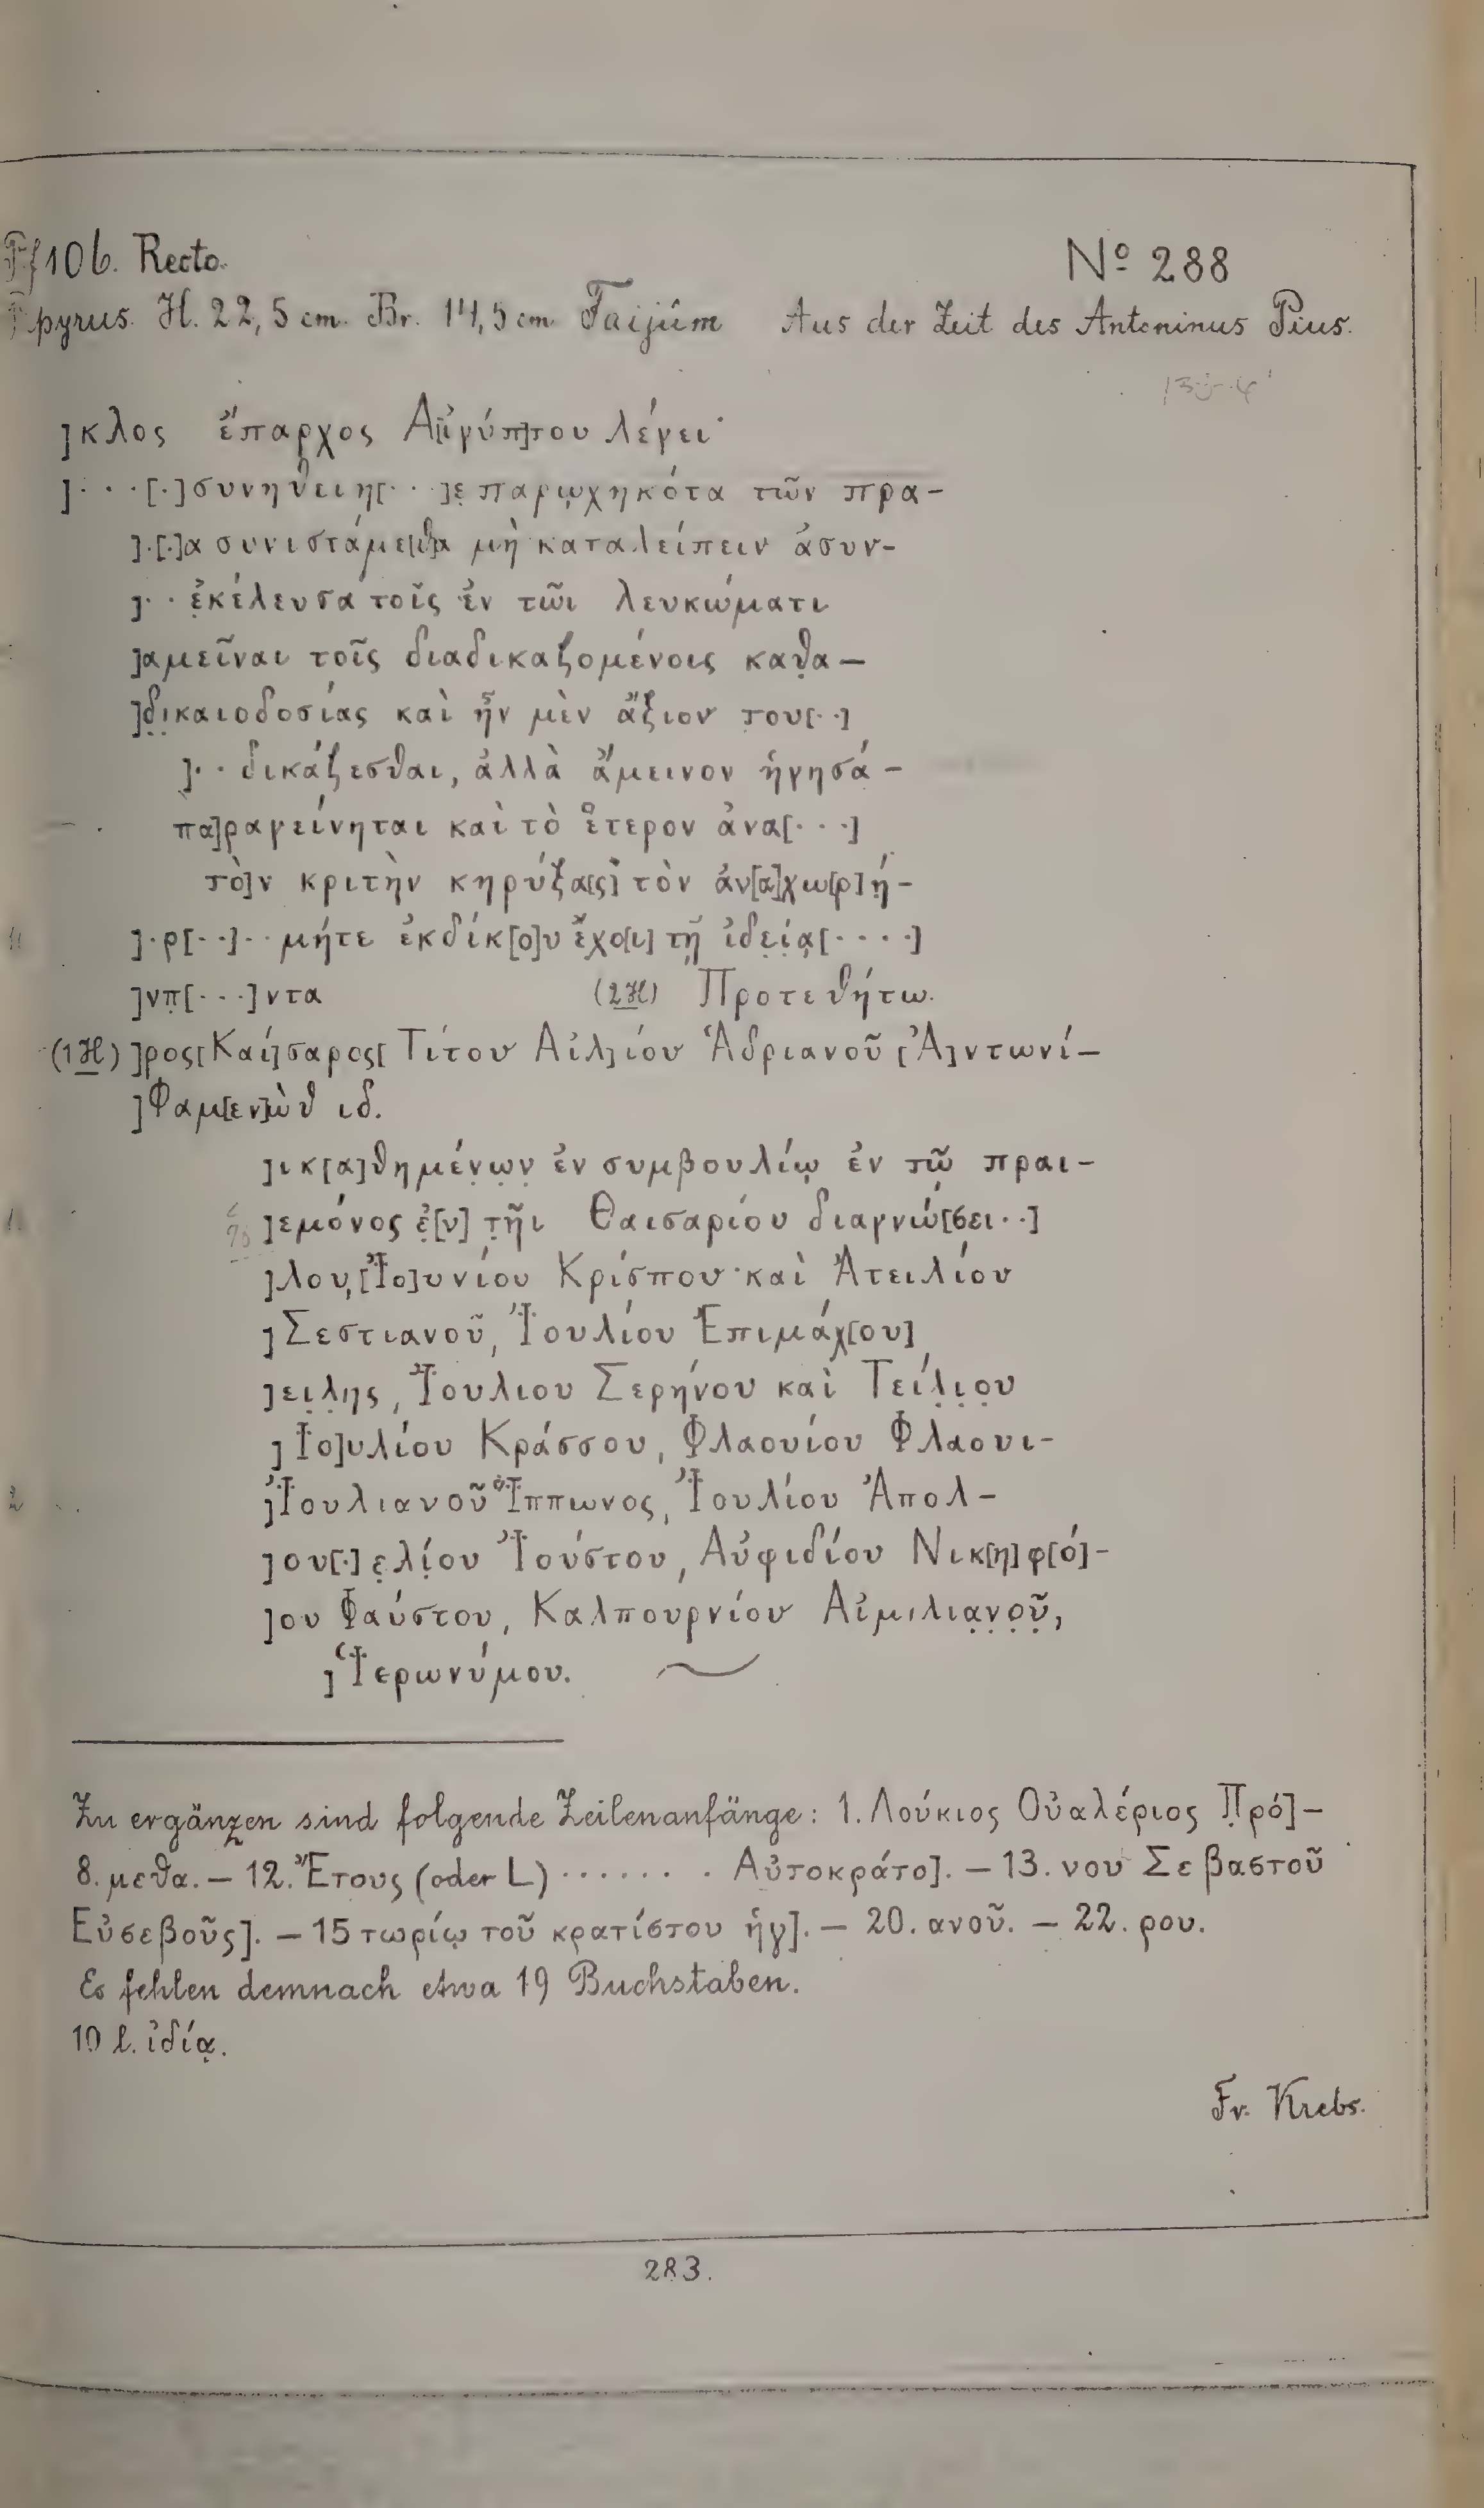 Pf 106. Recto. Nº 288
Papyrus. H. 22,5 cm. Br. 14,5 cm. Faijûm Aus der Zeit des Antoninus Pius.
]κλος ἔπαρχος Α[ἰγύπ]του λέγει·
]···[·]συνηθειη[··]ε̣ παρῳχηκότα τῶν πρα-
]·[·]α συνιστάμε[θ]α μὴ καταλείπειν ἀσυν-
]·· ἐ̣κέλευσα τοῖς ἐν τῶι λευκώματι
]αμεῖναι τοῖς διαδικαζομένοις καθ̣α-
]δ̣ι̣καιοδοσίας καὶ ἦν μὲν ἄξιον του[··]
]·· δικάζεσθαι, ἀλλὰ ἄμεινον ἡγησά-
πα]ραγείνηται καὶ τὸ ἕτερον ἀνα[···]
τὸ]ν κριτὴν κηρύξα[ς] τὸν ἀν[α]χω[ρ]ή̣-
]·ρ[··]·· μήτε ἐκδίκ[ο]υ ἔχο[ι] τῇ ἰδε̣ί̣ᾳ̣[····]
]νπ̣[···]ντα (2 H) Προτεθήτω.
(1 H) ]ρος[Καί]σαρος[ Τίτου Αἰλ]ίου Ἁδριανοῦ [Ἀ]ντωνί-
]Φαμ[εν]ὼθ ιδ.
]ικ[α]θημέν̣ω̣ν̣ ἐν συμβουλίῳ ἐν τῷ πραι-
]εμόνος ἐ̣[ν] τ̣ῆι Θαισαρίου διαγνώ[σει··]
]λου, [Ἰο]υνίου Κρίσπου καὶ Ἀτειλίου
]Σεστιανοῦ, Ἰουλίου Ἐπιμάχ[ου]
]ει̣λ̣ης, Ἰουλιου Σερήνου καὶ Τείλ̣ι̣ο̣υ
]Ἰο]υλίου Κράσσου, Φλαουίου Φλαουι-
]Ἰουλιανοῦ Ἵππωνος, Ἰουλίου Ἀπολ-
]ου[·] ε̣λί̣ου Ἰούστου, Αὐφιδίου Νικ[η]φ[ό]-
]ου Φαύστου, Καλπουρνίου Αἰμιλια̣ν̣ο̣ῦ̣,
]Ἱερωνύμου.
Zu ergänzen sind folgende Zeilenanfänge: 1. Λούκιος Οὐαλέριος Π̣ρό]-
8. μεθα. – 12. Ἔτους (oder L) ······· Αὐτοκράτο]. – 13. νου Σεβαστοῦ
Εὐσεβοῦς]. – 15 τωρίῳ τοῦ κρατίστου ἡγ]. – 20. ανοῦ. – 22. ρου.
Es fehlen demnach etwa 19 Buchstaben.
10 l. ἰδίᾳ.
Fr. Krebs.
283.